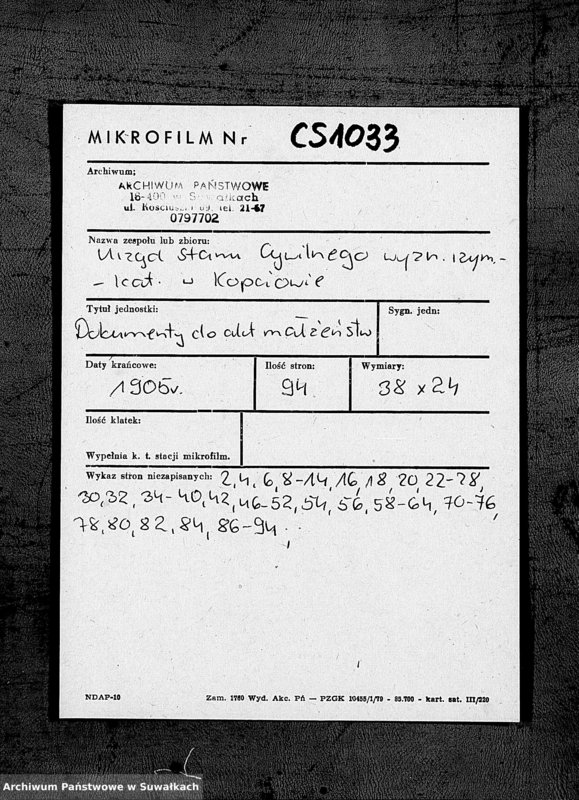 MIKROFILM Nr CS1033
Archiwum:
ARCHIWUM PAŃSTWOWE
16-400 w Suwałkach
ul. Kościuszki 69, tel. 21-67
0797702
Nazwa zespołu lub zbioru:
Urząd Stanu Cywilnego wyzn. rzym.-
- kat. w Kopciowie
Tytuł jednostki:
Sygn. jedn:
Dokumenty do akt małżeństw
Daty krańcowe:
Ilość stron:
Wymiary:
1905r.
94
38 x 24
Ilość klatek:
Wypełnia k. t. stacji mikrofilm.
Wykaz stron niezapisanych: 2, 4, 6, 8-14, 16, 18, 20, 22-28,
30, 32, 34-40, 42, 46-52, 54, 56, 58-64, 70-76,
78, 80, 82, 84, 86-94.
NDAP-10
Zam. 1760 Wyd. Akc. Pń — PZGK 10455/I/79 - 85.700 - kart. sat. III/220
Archiwum Państwowe w Suwałkach